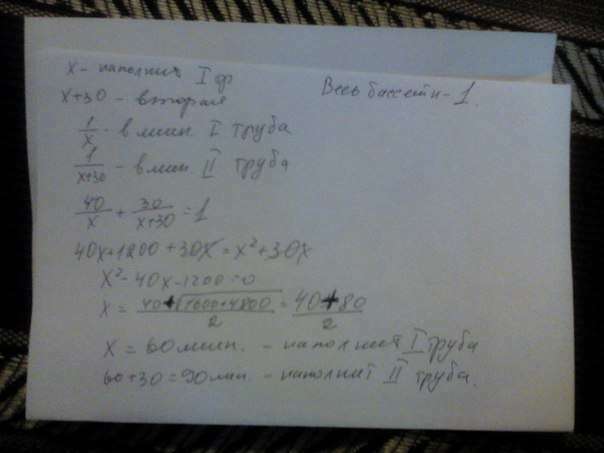 x – наполнит I тр
Весь бассейн – 1.
x+30 – вторая
1/x – в мин. I труба
1/(x+30) – в мин II труба
40/x + 30/(x+30) = 1
40x+1200+30x = x²+30x
x²-40x-1200=0
x = (40+√(1600+4800))/2 = (40+80)/2
x = 60 мин. – наполнит I труба
60+30=90 мин – наполнит II труба.